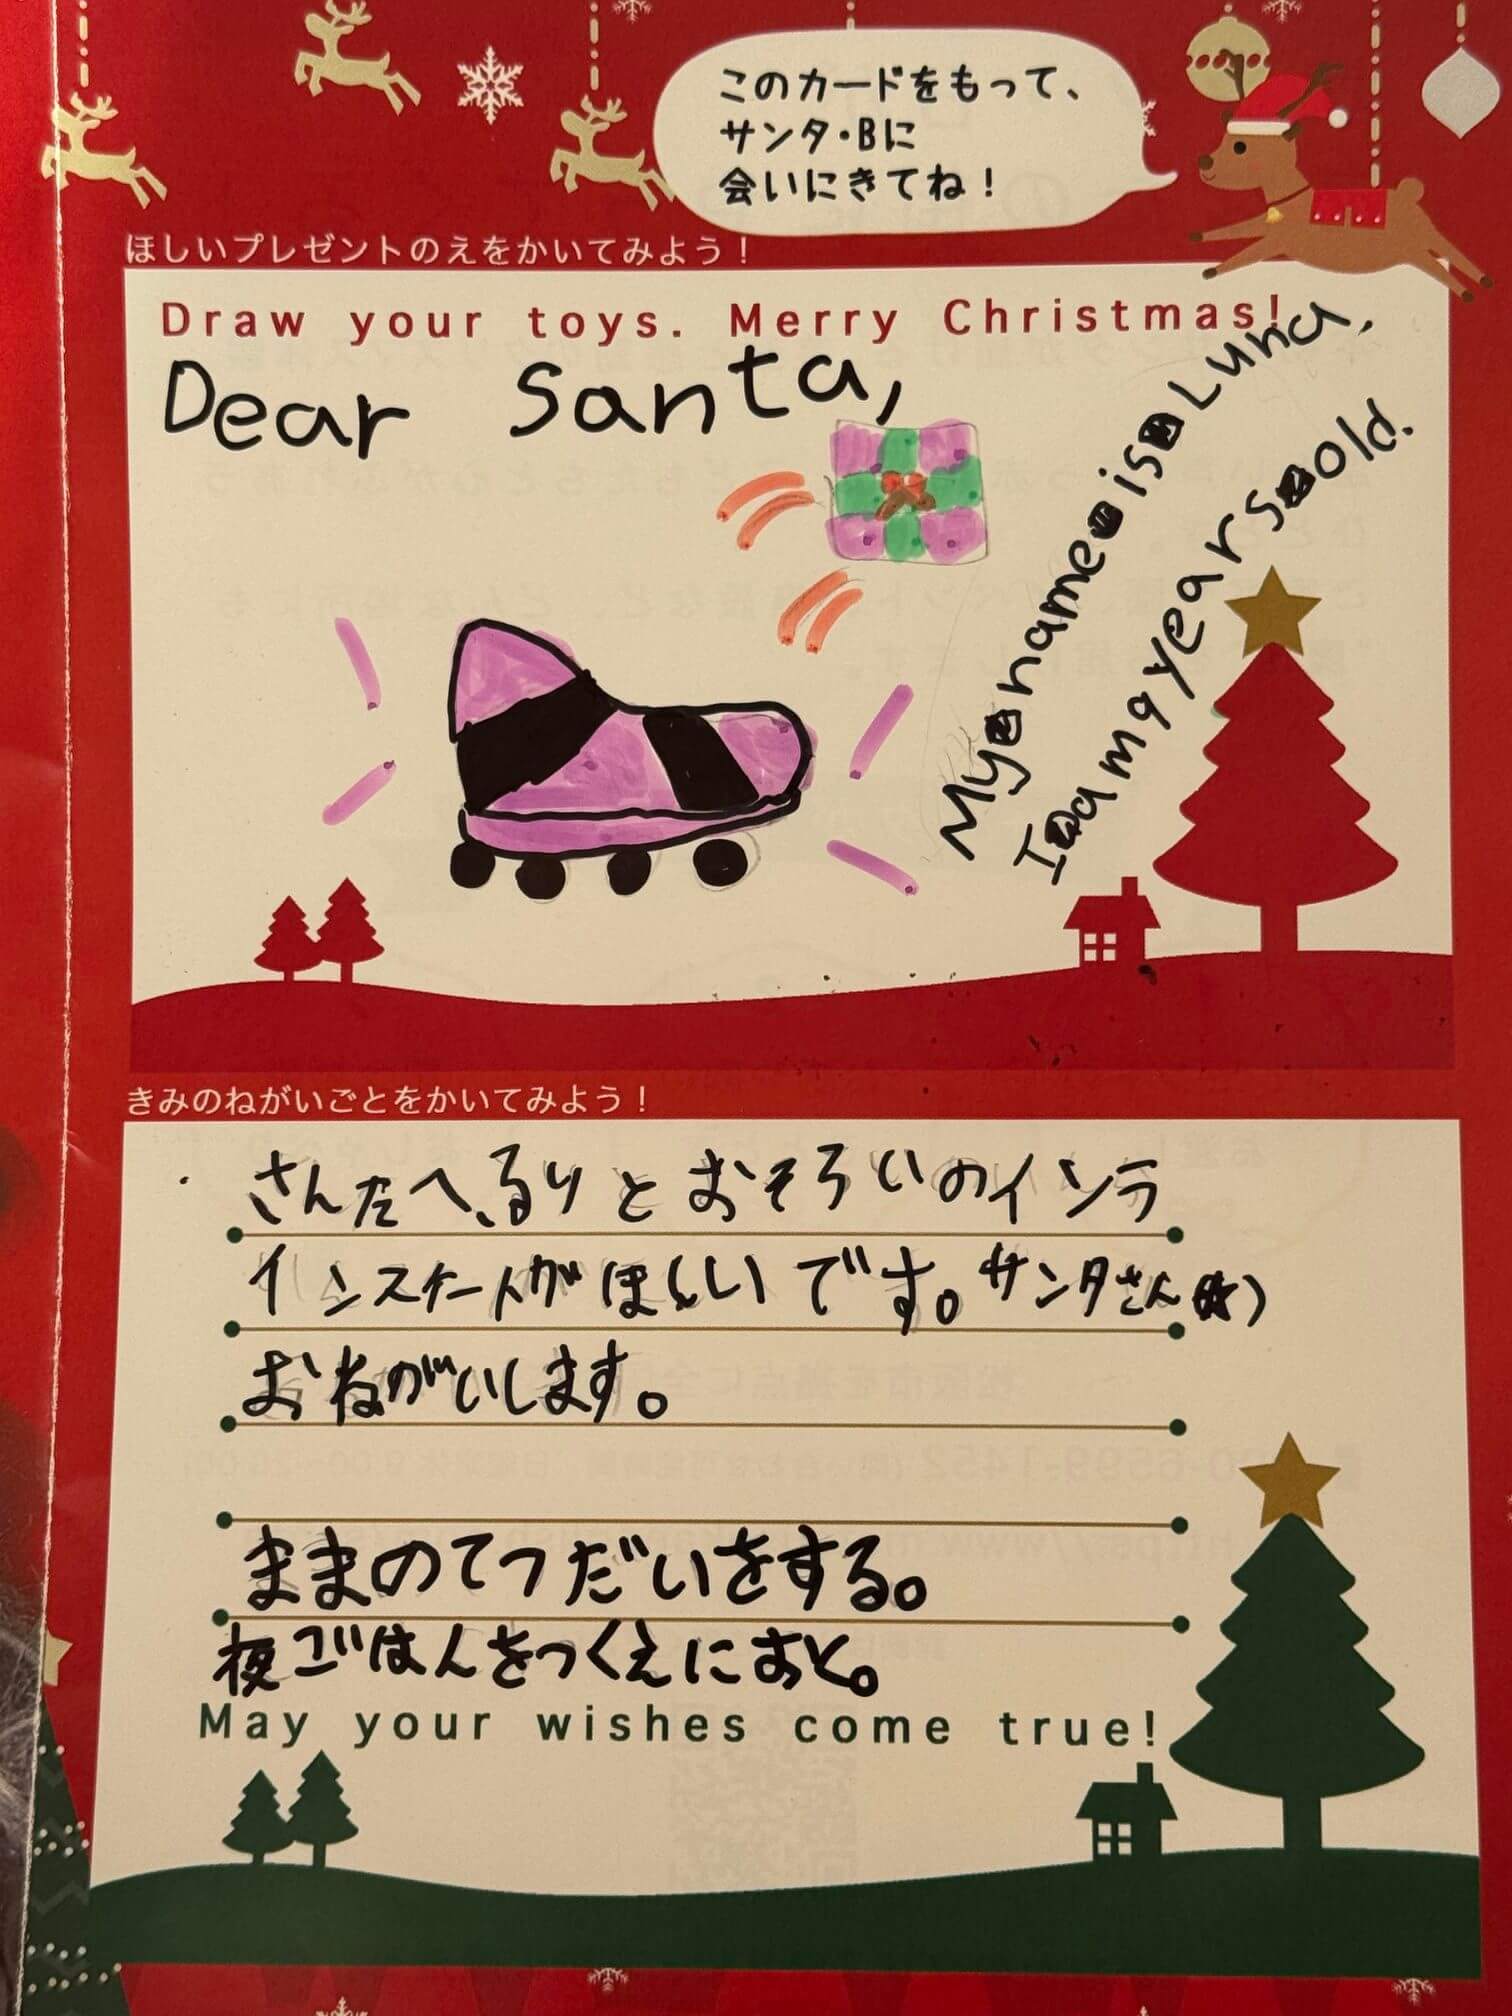 このカードをもって、
サンタ・Bに
会いにきてね！
ほしいプレゼントのえをかいてみよう！
Draw your toys. Merry Christmas!
Dear Santa,
My name is Luna,
I am 9 years old.
きみのねがいごとをかいてみよう！
さんたへ、るりとおそろいのインラ
インスケートがほしいです。サンタさん
おねがいします。
ままのてつだいをする。
夜ごはんをつくえにおく。
May your wishes come true!